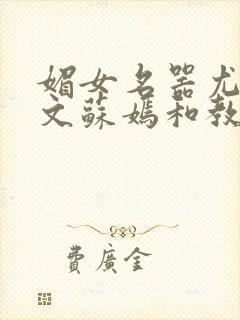 媚女名器尤
文蘇媽和教
費廣金